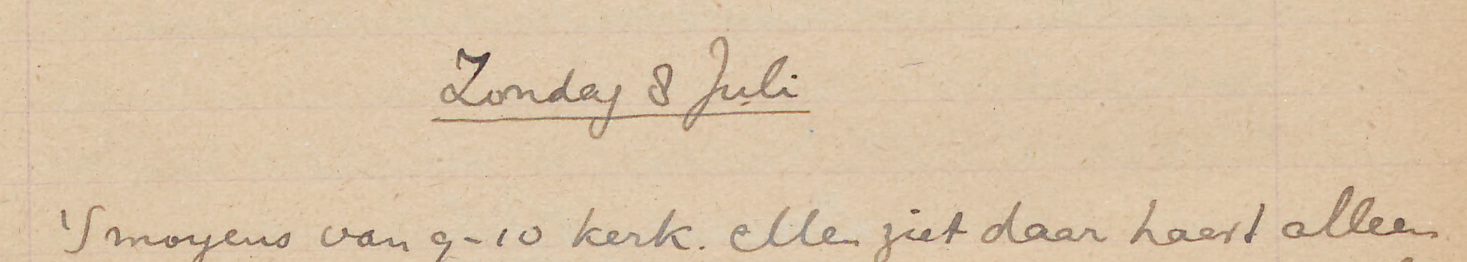 Zondag 8 Juli
's morgens van 9-10 kerk. Men ziet daar haast alleen